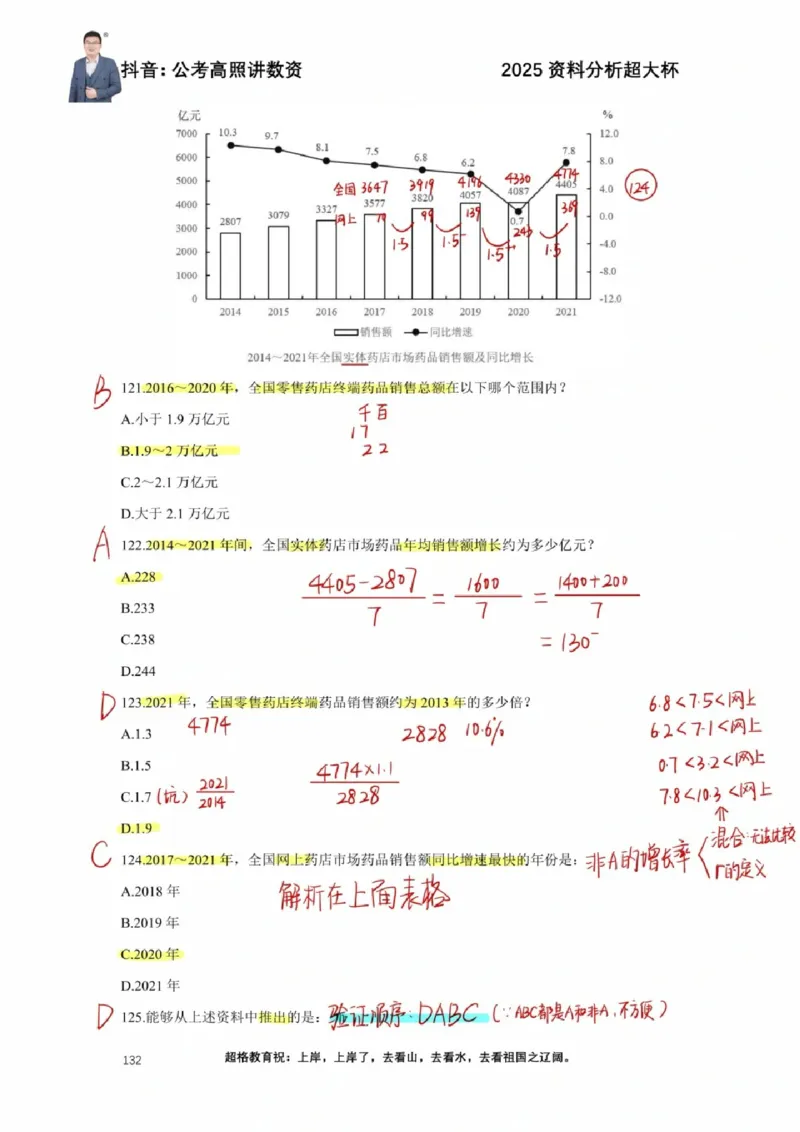 抖音：公考高照讲数资
2025 资料分析超大杯
亿元
%
7000
6000
5000
4000
3000
2000
1000
0
12.0
8.0
4.0
0.0
-4.0
-8.0
-12.0
10.3 9.7 8.1 7.5 6.8 6.2 0.7 7.8
全国 3647 3919 4196 4330 4774
124
2807 3079 3327 3577 3820 4057 4087 4405
网上 70 99 139 243 369
1.5 1.5⁻ 1.5⁺⁺ 1.5
2014 2015 2016 2017 2018 2019 2020 2021
销售额 同比增速
2014～2021年全国实体药店市场药品销售额及同比增长
B 121.2016～2020 年，全国零售药店终端药品销售总额在以下哪个范围内？
A.小于 1.9 万亿元
千百
17
B.1.9～2 万亿元
22
C.2～2.1 万亿元
D.大于 2.1 万亿元
A 122.2014～2021 年间，全国实体药店市场药品年均销售额增长约为多少亿元？
A.228
4405-2807/7 = 1600/7 = 1400+200/7
B.233
= 130⁻
C.238
D.244
D 123.2021 年，全国零售药店终端药品销售额约为 2013 年的多少倍？
6.8<7.5<网上
A.1.3
4774
2828 10.6%
6.2<7.1<网上
B.1.5
4774×1.1/2828
0.7<3.2<网上
C.1.7 (坑) 2021/2014
7.8<10.3<网上
D.1.9
C 124.2017～2021 年，全国网上药店市场药品销售额同比增速最快的年份是：
非A的增长率
混合:无法比较
r的定义
A.2018 年
解析在上面表格
B.2019 年
C.2020 年
D.2021 年
D 125.能够从上述资料中推出的是：
验证顺序:DABC (∵ABC都是A和非A,不方便)
132
超格教育祝：上岸，上岸了，去看山，去看水，去看祖国之辽阔。